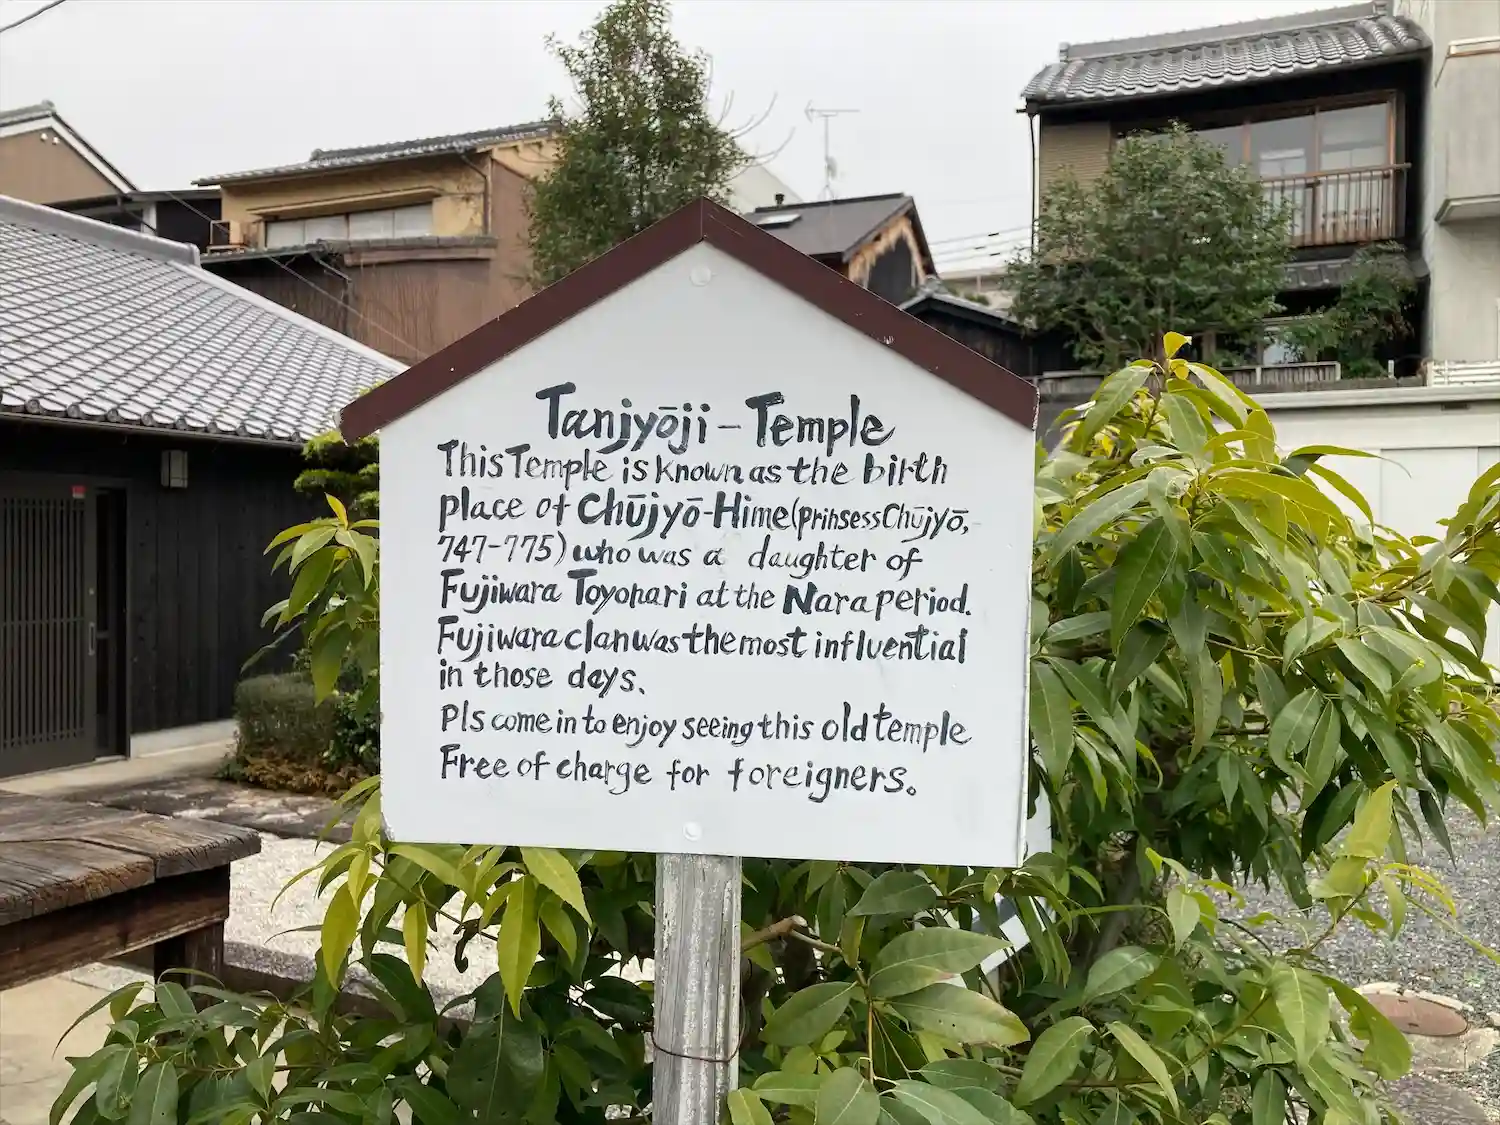 Tanjyōji-Temple
This Temple is known as the birth
place of Chūjyō-Hime(prihsess Chūjyō,
747-775) who was a daughter of
Fujiwara Toyonari at the Nara period.
Fujiwara clan was the most influential
in those days.
Pls come in to enjoy seeing this old temple
Free of charge for foreigners。